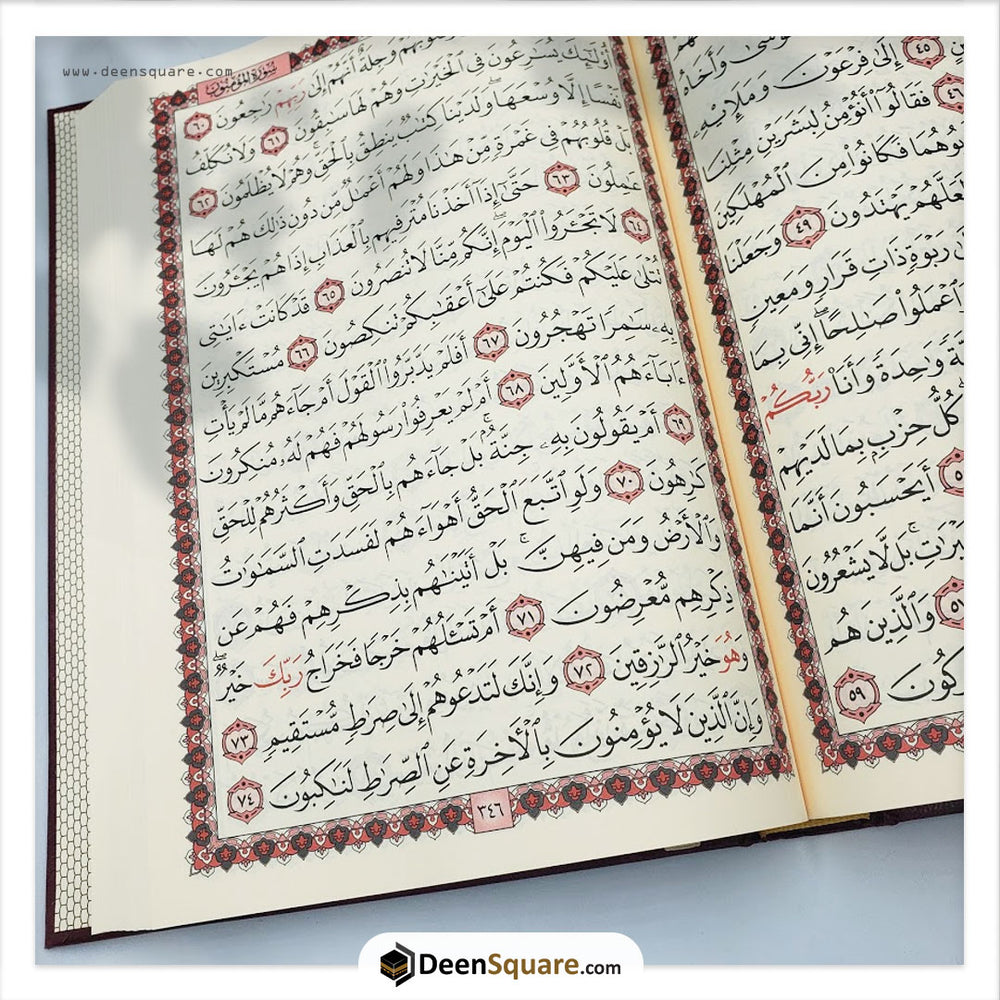 www.deensquare.com
مُوسَىٰ وَأَخَاهُ
٤٥ إِلَىٰ فِرْعَوْنَ وَمَلَإِيْهِۦ
٤٦ فَقَالُوٓا۟ أَنُؤْمِنُ لِبَشَرَيْنِ مِثْلِنَا
فَكَانُوا۟ مِنَ ٱلْمُهْلَكِينَ
لَعَلَّهُمْ يَهْتَدُونَ ٤٩ وَجَعَلْنَا
رَبْوَةٍ ذَاتِ قَرَارٍ وَمَعِينٍ
ٱعْمَلُوا۟ صَـٰلِحًا ۖ إِنِّى بِمَا
وَٰحِدَةً وَأَنَا۠ رَبُّكُمْ
كُلُّ حِزْبٍۭ بِمَا لَدَيْهِمْ
أَيَحْسَبُونَ أَنَّمَا
بَل لَّا يَشْعُرُونَ
٥٧ وَٱلَّذِينَ هُم
٥٩
سُورَةُ المُؤْمِنُونَ
أُو۟لَـٰٓئِكَ يُسَـٰرِعُونَ فِى ٱلْخَيْرَٰتِ وَهُمْ لَهَا سَـٰبِقُونَ ٦١ وَلَا نُكَلِّفُ
وَجِلَةٌ أَنَّهُمْ إِلَىٰ رَبِّهِمْ رَٰجِعُونَ ٦٠
نَفْسًا إِلَّا وُسْعَهَا ۖ وَلَدَيْنَا كِتَـٰبٌ يَنطِقُ بِٱلْحَقِّ ۚ وَهُمْ لَا يُظْلَمُونَ ٦٢
بَلْ قُلُوبُهُمْ فِى غَمْرَةٍ مِّنْ هَـٰذَا وَلَهُمْ أَعْمَـٰلٌ مِّن دُونِ ذَٰلِكَ هُمْ لَهَا
عَـٰمِلُونَ ٦٣ حَتَّىٰٓ إِذَآ أَخَذْنَا مُتْرَفِيهِم بِٱلْعَذَابِ إِذَا هُمْ يَجْـَٔرُونَ
٦٤ لَا تَجْـَٔرُوا۟ ٱلْيَوْمَ ۖ إِنَّكُم مِّنَّا لَا تُنصَرُونَ ٦٥ قَدْ كَانَتْ ءَايَـٰتِى
تُتْلَىٰ عَلَيْكُمْ فَكُنتُمْ عَلَىٰٓ أَعْقَـٰبِكُمْ تَنكِصُونَ ٦٦ مُسْتَكْبِرِينَ
بِهِۦ سَـٰمِرًا تَهْجُرُونَ ٦٧ أَفَلَمْ يَدَّبَّرُوا۟ ٱلْقَوْلَ أَمْ جَآءَهُم مَّا لَمْ يَأْتِ
ءَابَآءَهُمُ ٱلْأَوَّلِينَ ٦٨ أَمْ لَمْ يَعْرِفُوا۟ رَسُولَهُمْ فَهُمْ لَهُۥ مُنكِرُونَ
٦٩ أَمْ يَقُولُونَ بِهِۦ جِنَّةٌۢ ۚ بَلْ جَآءَهُم بِٱلْحَقِّ وَأَكْثَرُهُمْ لِلْحَقِّ
كَـٰرِهُونَ ٧٠ وَلَوِ ٱتَّبَعَ ٱلْحَقُّ أَهْوَآءَهُمْ لَفَسَدَتِ ٱلسَّمَـٰوَٰتُ
وَٱلْأَرْضُ وَمَن فِيهِنَّ ۚ بَلْ أَتَيْنَـٰهُم بِذِكْرِهِمْ فَهُمْ عَن
ذِكْرِهِم مُّعْرِضُونَ ٧١ أَمْ تَسْـَٔلُهُمْ خَرْجًا فَخَرَاجُ رَبِّكَ خَيْرٌ ۖ
وَهُوَ خَيْرُ ٱلرَّٰزِقِينَ ٧٢ وَإِنَّكَ لَتَدْعُوهُمْ إِلَىٰ صِرَٰطٍ مُّسْتَقِيمٍ ٧٣
وَإِنَّ ٱلَّذِينَ لَا يُؤْمِنُونَ بِٱلْـَٔاخِرَةِ عَنِ ٱلصِّرَٰطِ لَنَـٰكِبُونَ ٧٤
٣٤٦
DeenSquare.com